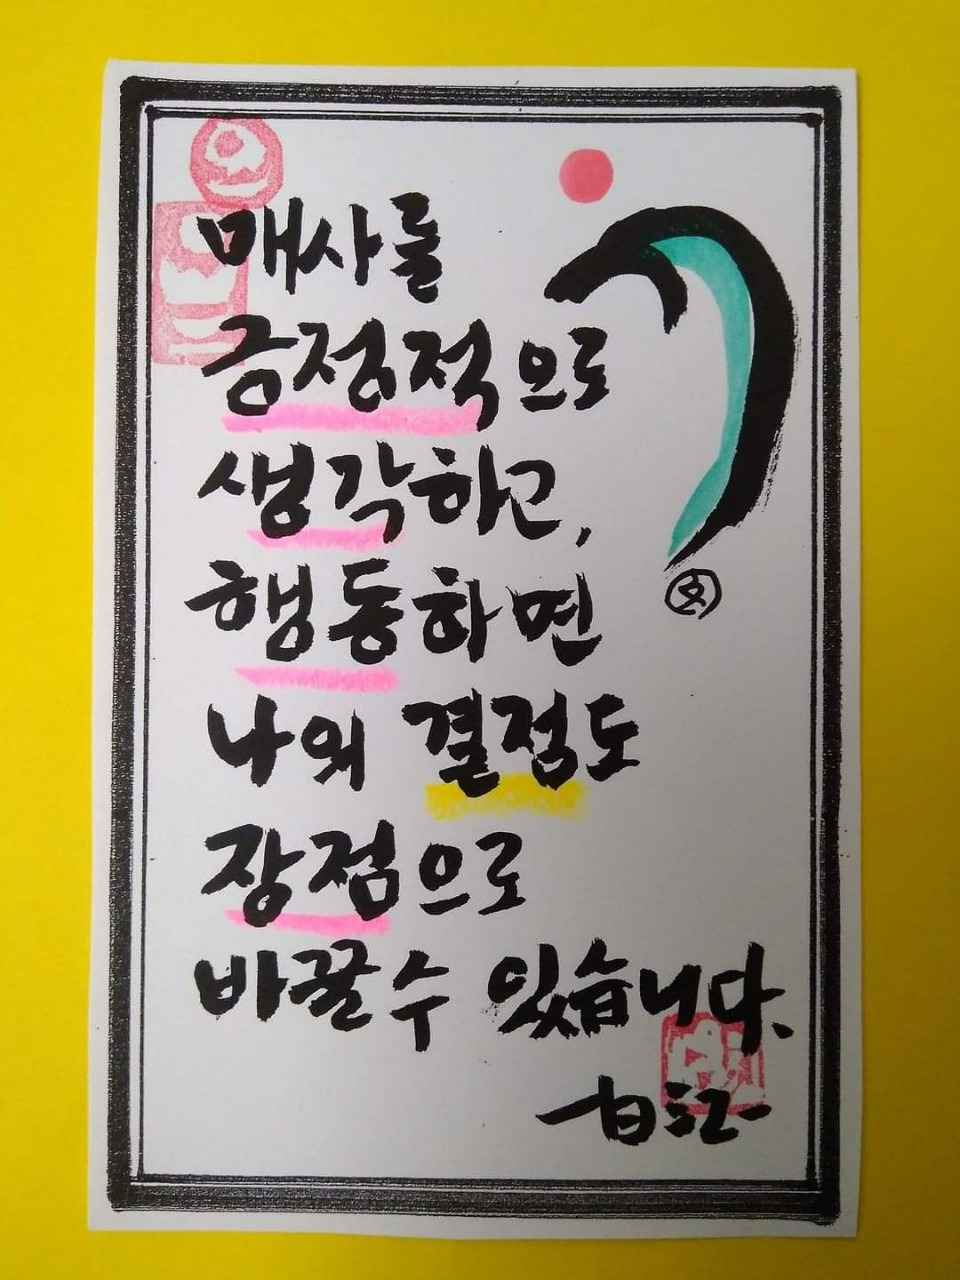 매사를
긍정적으로
생각하고,
행동하면
나의 결점도
장점으로
바꿀수 있습니다.
白江